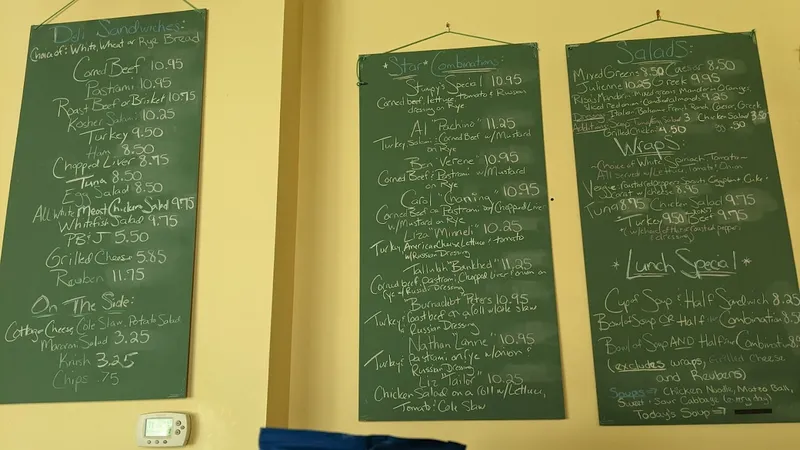 Deli Sandwiches:
Choice of: White, Wheat or Rye Bread
Corned Beef 10.95
Pastrami 10.95
Roast Beef or Brisket 10.95
Kosher Salami 10.25
Turkey 9.50
Ham 8.50
Chopped Liver 8.95
Tuna 8.50
Egg Salad 8.50
All White Meat Chicken Salad 9.75
Whitefish Salad 9.75
PB & J 5.50
Grilled Cheese 5.85
Reuben 11.75
On The Side:
Cottage Cheese, Cole Slaw, Potato Salad,
Macaroni Salad 3.25
Knish 3.25
Chips .75
*Star* Combinations:
Stumpy's Special 10.95
Corned beef, lettuce, tomato & Russian
dressing on Rye
Al "Pachino" 11.25
Turkey, Salami, Corned Beef w/ Mustard
on Rye
Ben "Verene" 10.95
Corned Beef & Pastrami w/ Mustard
on Rye
Carol "Chaning" 10.95
Corned Beef or Pastrami w/ Chopped Liver
w/ Mustard on Rye
Liza "Minneli" 10.25
Turkey, American Cheese, Lettuce & tomato
w/ Russian Dressing
Tallulah "Bankhed" 11.25
Corned beef, Pastrami, Chopped Liver & onion on
Rye w/ Russian Dressing
Burnadet Peters 10.95
Turkey & roast beef on a roll w/ cole slaw
Russian Dressing
Nathan "Lanne" 10.95
Turkey & Pastrami on rye w/ onion &
Russian Dressing
Liz "Tailor" 10.25
Chicken Salad on a roll w/ Lettuce,
Tomato & Cole Slaw
Salads:
Mixed Greens 3.50 Caesar 8.50
Julienne 10.25 Greek 9.95
Mandarin 9.25
Dressing: Italian, Balsamic, French, Ranch, Caesar, Greek
Chicken Salad 3.50
Grilled Chicken 4.50
Wraps:
Choice of White, Spinach, Tomato
All served w/ Lettuce, Tomato & Onion
Veggie
carrot w/ cheese 8.95
Tuna 8.95 Chicken Salad 9.75
Turkey 9.50 Roast Beef 9.75
& dressing)
*Lunch Special*
Cup of Soup & Half Sandwich 8.25
Bowl of Soup OR Half Combination 8.50
Bowl of Soup AND Half Combination
(excludes wraps, Grilled Cheese
and Reubens)
Soups ⇒ Chicken Noodle, Matzo Ball,
Sweet & Sour Cabbage (everyday)
Today's Soup ⇒